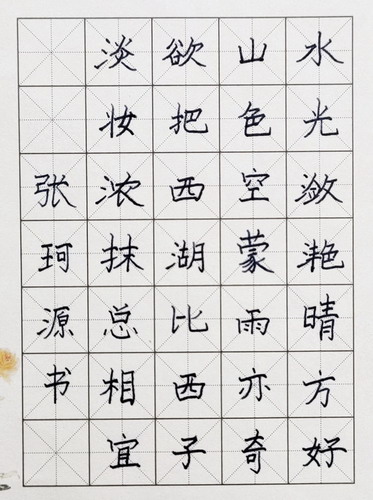 水光潋滟晴方好
山色空蒙雨亦奇
欲把西湖比西子
淡妆浓抹总相宜
张珂源书